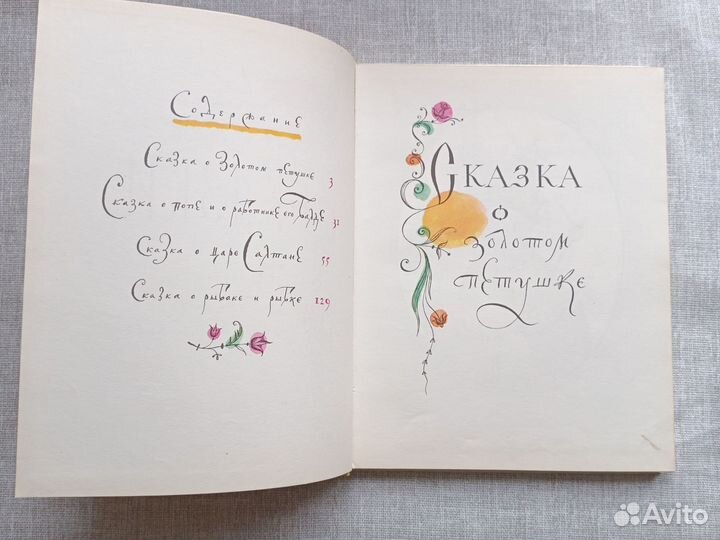 Содержание
Сказка о Золотом петушке 3
Сказка о попе и о работнике его Балде 31
Сказка о царе Салтане 55
Сказка о рыбаке и рыбке 129
Сказка
о
золотом
петушке
Avito